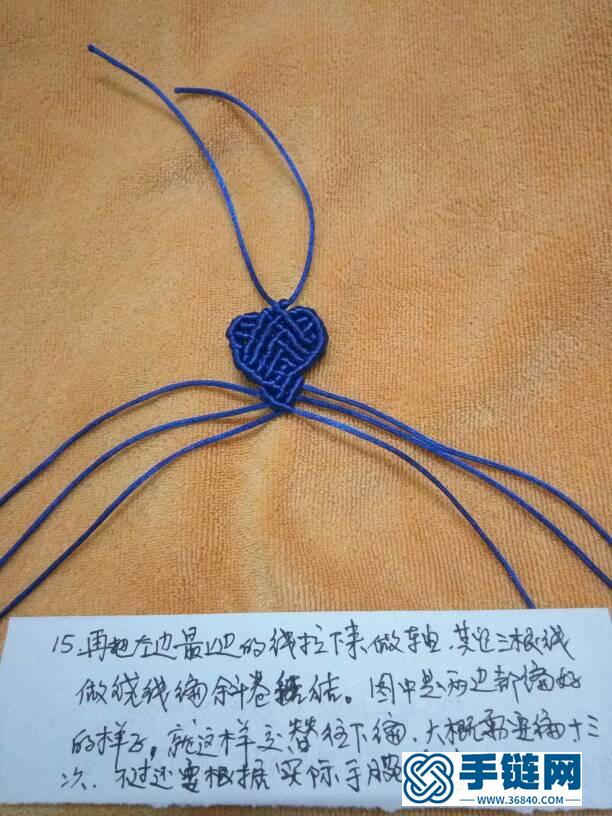 15.再把左边最边的线拉下来做轴.其它三根线
做绕线编斜卷结。图中是两边都编好
的样子,就这样交替往下编,大概需要编十三
次.不过还要根据实际手腕
手链网
WWW.36840.COM